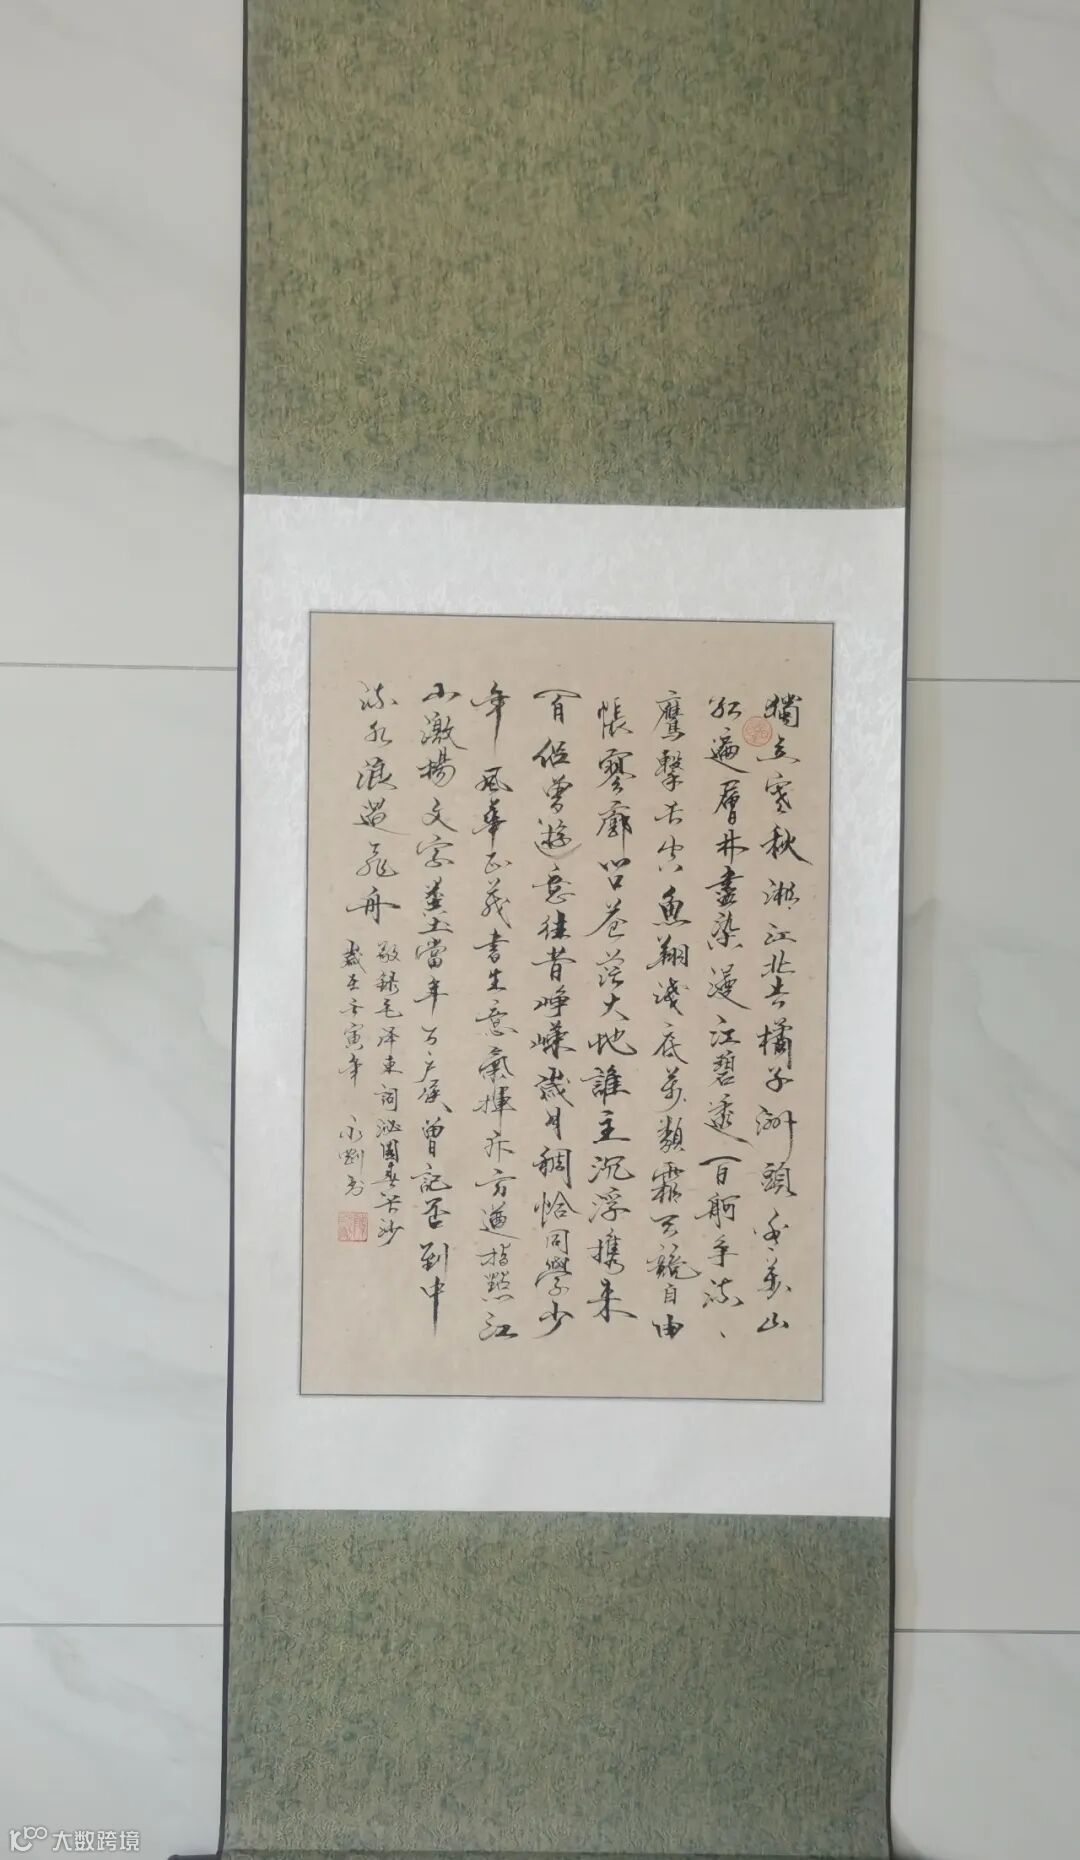 獨立寒秋湘江北去橘子洲頭看萬山
紅遍層林盡染漫江碧透百舸争流、
鷹擊長空魚翔淺底萬類霜天競自由
悵寥廓問蒼茫大地誰主沉浮携来
百侣曾遊憶往昔崢嶸歲月稠恰同學少
年風華正茂書生意氣揮斥方遒指點江
山激揚文字糞土當年万户侯曾記否到中
流水浪遏飛舟
敬録毛泽東詞沁園春長沙
歲在壬寅年 永劉书
大数跨境